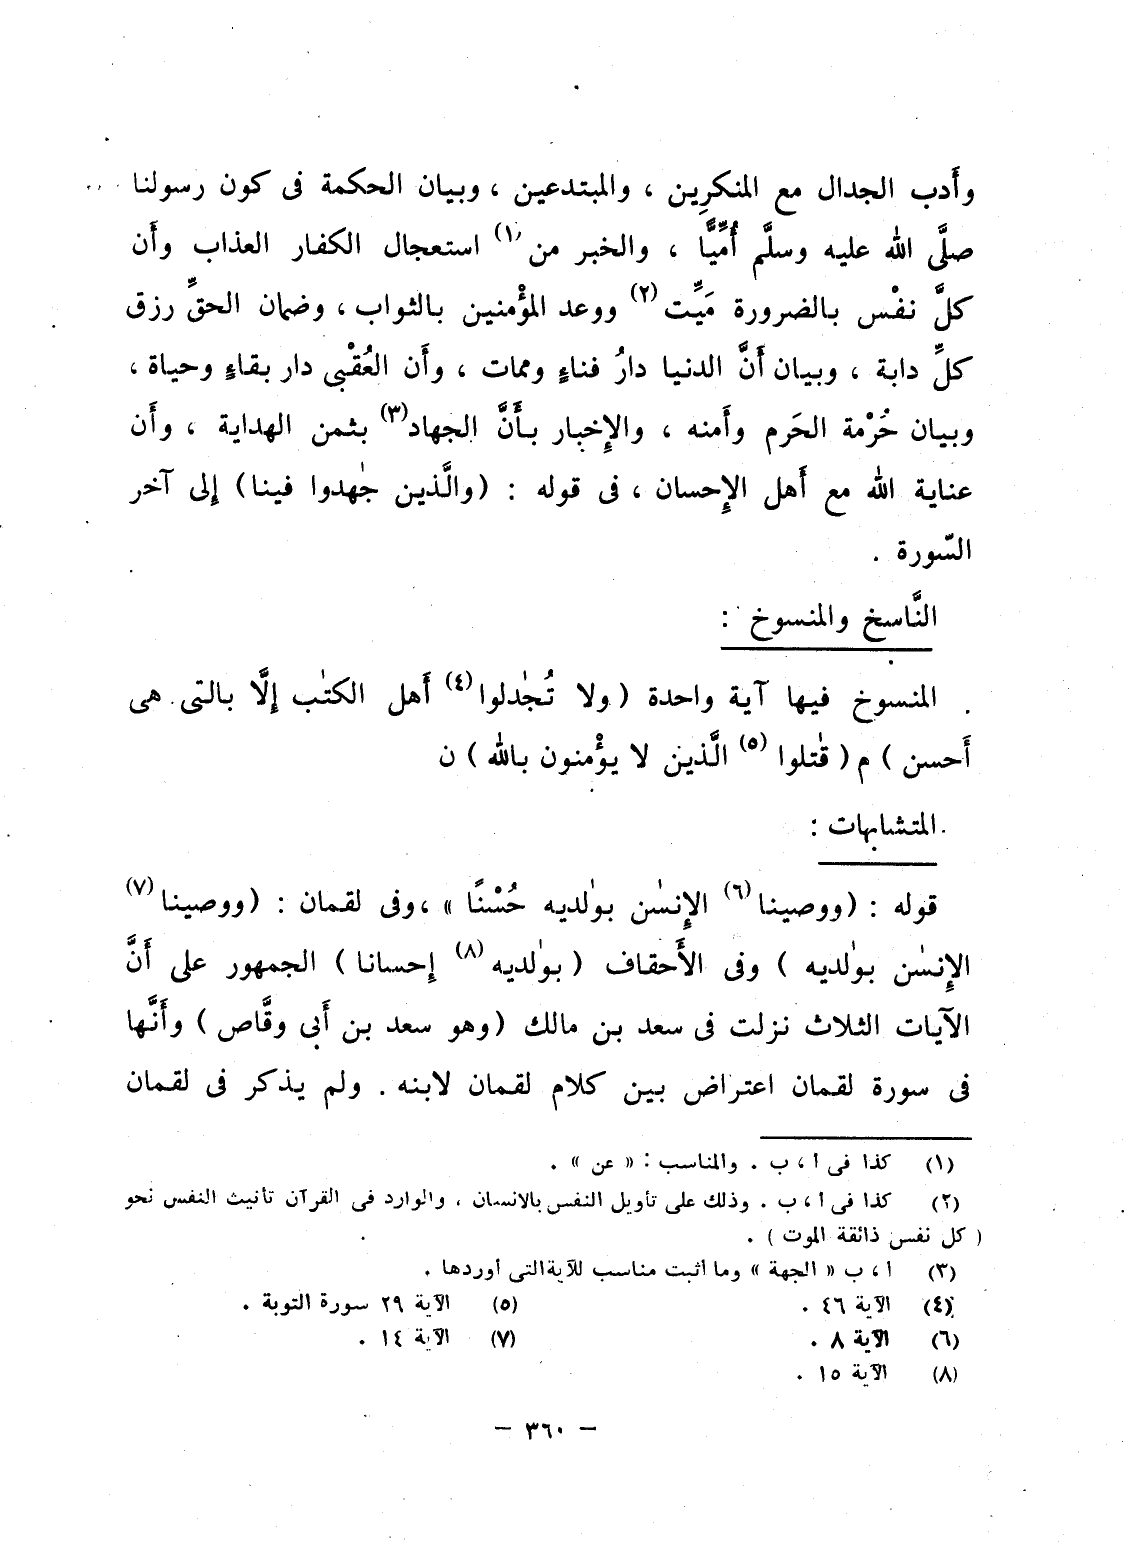 وأَدب الجدال مع المنكرِين ، والمبتدعين ، وبيان الحكمة فى كون رسولنا
صلَّى الله عليه وسلَّم أُمِّيًّا ، والخبر من (١) استعجال الكفار العذاب وأَن
كلَّ نفْس بالضرورة مَيِّت (٢) ووعد المؤْمنين بالثواب ، وضمان الحقِّ رزق
كلِّ دابة ، وبيان أَنَّ الدنيا دارُ فناءٍ وممات ، وأَن العُقْبى دار بقاءٍ وحياة ،
وبيان حُرْمة الحَرم وأَمنه ، والإِخبار بأَنَّ الجهاد (٣) بثمن الهداية ، وأَن
عناية الله مع أَهل الإِحسان ، فى قوله : (والَّذين جٰهدوا فينا) إِلى آخر
السّورة .
النَّاسخ والمنسوخ :
المنسوخ فيها آية واحدة (ولا تُجٰدلوا (٤) أَهل الكتٰب إِلَّا بالتى هى
أَحسن ) م ( قٰتلوا (٥) الَّذين لا يؤْمنون بالله ) ن
المتشابهات :
قوله : (ووصينا (٦) الإِنسٰن بوٰلديه حُسْنًا » ، وفى لقمان : (ووصينا (٧)
الإِنسٰن بوٰلديه ) وفى الأَحقاف ( بوٰلديه (٨) إحسانا ) الجمهور على أَنَّ
الآيات الثلاث نزلت فى سعد بن مالك (وهو سعد بن أَبى وقَّاص ) وأَنَّها
فى سورة لقمان اعتراض بين كلام لقمان لابنه . ولم يذكر فى لقمان
(١) كذا فى أ ، ب . والمناسب : « عن » .
(٢) كذا فى أ ، ب . وذلك على تأويل النفس بالانسان ، والوارد فى القرآن تأنيث النفس نحو
( كل نفس ذائقة الموت ) .
(٣) أ ، ب « الجهة » وما أثبت مناسب للآية التى أوردها .
(٤) الآية ٤٦ . (٥) الآية ٢٩ سورة التوبة .
(٦) الآية ٨ . (٧) الآية ١٤ .
(٨) الآية ١٥ .
– ٣٦٠ –